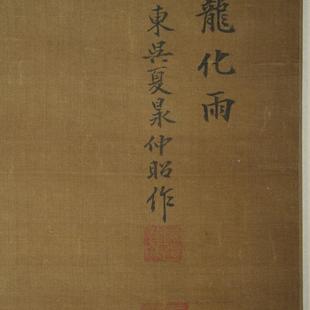 龍化雨
東吳夏㫤仲昭作